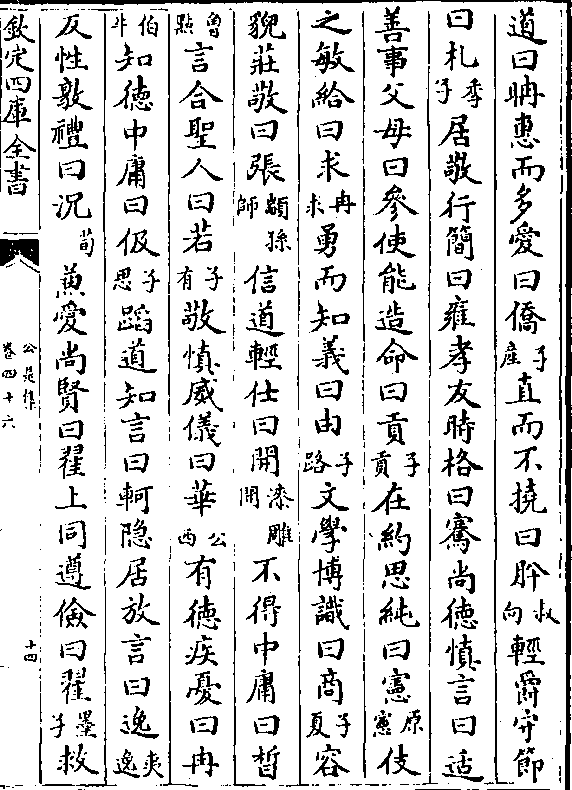 道曰聃惠而多愛曰僑子產直而不撓曰肸叔向輕爵守節
曰札季子居敬行簡曰雍孝友時格曰騫尚德慎言曰适
善事父母曰參使能造命曰貢子貢在約思純曰憲原憲伎
之敏給曰求冉求勇而知義曰由子路文學博識曰商子夏容
貌莊敬曰張顓孫師信道輕仕曰開漆雕開不得中庸曰晳
魯點言合聖人曰若子有敬慎威儀曰華公西有德疾憂曰冉
伯牛知德中庸曰伋子思蹈道知言曰軻隱居放言曰逸夷逸
反性敦禮曰況荀兼愛尚賢曰翟上同遵儉曰翟墨子救
欽定四庫全書
公是集
卷四十六
十四